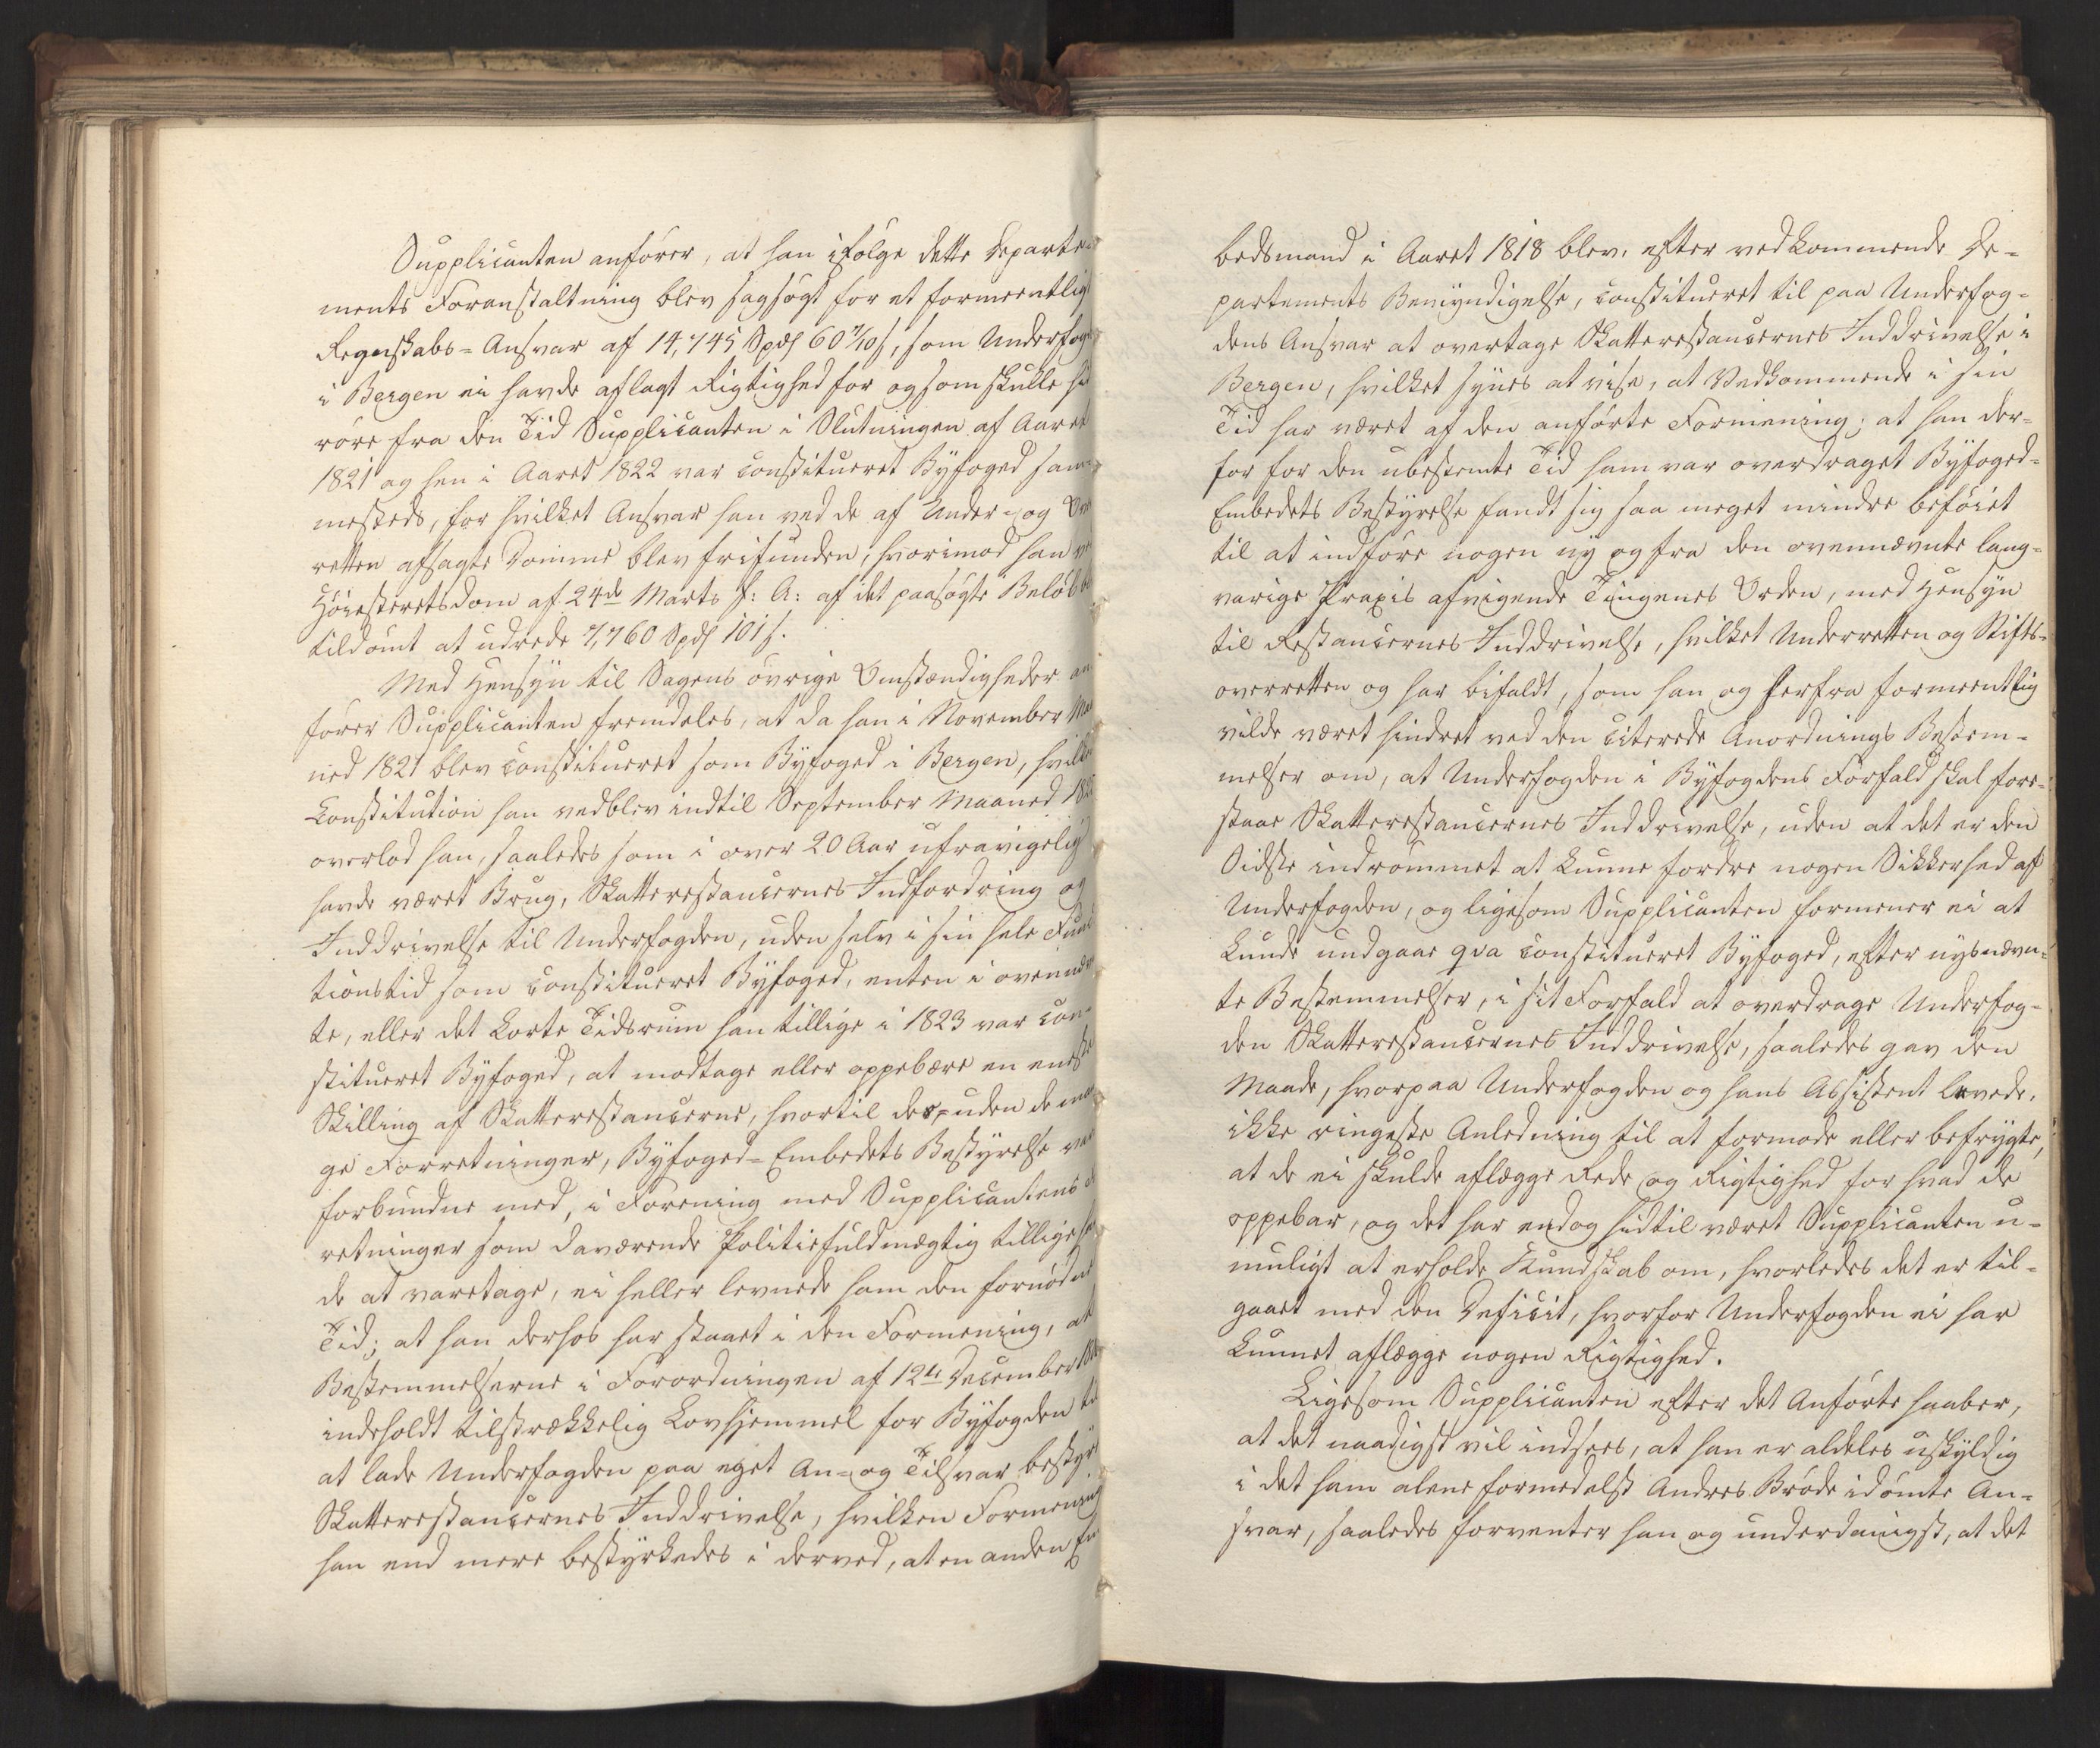 Supplicanten anfører, at han ifølge dette Departe-
ments Foranstaltning blev sagsøgt for et formeentligt
Regnskabs-Ansvar af 14,745 Spd 60 7/10 s, som Underfog
i Bergen ei havde aflagt Rigtighed for og som skulle hid
røre fra den Tid Supplicanten i Slutningen af Aaret
1821 og hen i Aaret 1822 var constitueret Byfoged sam-
mesteds, for hvilket Ansvar han ved de af Under- og Over
retten afsagte Domme blev frifunden, hvorimod han ve
Høiesteretsdom af 24de Marts f: A: af det paasøgte Beløb be
tildømt at udrede 7,760 Spd 101 s.
Med Hensyn til Sagens øvrige Omstændigheder an
fører Supplicanten fremdeles, at da han i November Maa
ned 1821 blev constitueret som Byfoged i Bergen, hvilken
Constitution han vedblev indtil September Maaned 182
overlod han, saaledes som i over 20 Aar ufravigelig
havde været Brug, Skatterestancernes Indfordring og
Inddrivelse til Underfogden, uden selv i sin hele Func
tionstid som constitueret Byfoged, enten i ovennævn
te, eller det korte Tidsrum han tillige i 1823 var con-
stitueret Byfoged, at modtage eller oppebære en eneste
Skilling af Skatterestancerne, hvortil des-uden de man
ge Forretninger, Byfoged-Embedets Bestyrelse var
forbundne med, i Forening med Supplicantens
retninger som daværende Politiefuldmægtig tillige hav
de at varetage, ei heller levnede ham den fornødne
Tid; at han derhos har staaet i den Formening, at
Bestemmelserne i Forordningen af 12te December 18
indeholdt tilstrækkelig Lovhjemmel for Byfogden til
at lade Underfogden paa eget An- og Tilsvar bestyre
Skatterestancernes Inddrivelse, hvilken Formening
han end mere bestyrkedes i derved, at en anden Em
bedsmand i Aaret 1818 blev, efter vedkommende De-
partements Bemyndigelse, constitueret til paa Underfog-
dens Ansvar at overtage Skatterestancernes Inddrivelse i
Bergen, hvilket synes at vise, at Vedkommende i sin
Tid har været af den anførte Formening; at han der-
for for den ubestemte Tid ham var overdraget Byfoged-
Embedets Bestyrelse fandt sig saa meget mindre beføiet
til at indføre nogen ny og fra den ovennævnte lang-
varige Praxis afvigende Tingenes Orden, med Hensyn
til Restancernes Inddrivelse, hvilket Underretten og Stifts-
overretten og har bifaldt, som han og herfra formeentlig
vilde været hindret ved den citerede Anordnings Bestem-
melser om, at Underfogden i Byfogdens Forfald skal fore-
staae Skatterestancernes Inddrivelse, uden at det er den
Sidste indrømmet at kunne fordre nogen Sikkerhed af
Underfogden, og ligesom Supplicanten formener ei at
kunde undgaae qva constitueret Byfoged, efter nysnævn-
te Bestemmelser, i sit Forfald at overdrage Underfog-
den Skatterestancernes Inddrivelse, saaledes gav den
Maade, hvorpaa Underfogden og hans Assistent levede,
ikke ringeste Anledning til at formode eller befrygte,
at de ei skulde aflægge Rede og Rigtighed for hvad de
oppebar, og det har endog hidtil været Supplicanten u-
muligt at erholde Kundskab om, hvorledes det er til-
gaaet med den Deficit, hvorfor Underfogden ei har
kunnet aflægge nogen Rigtighed.
Ligesom Supplicanten efter det Anførte haaber,
at det naadigst vil indsees, at han er aldeles uskyldig
i det ham alene formedelst Andres Brøde idømte An-
svar, saaledes forventer han og underdanigst, at det